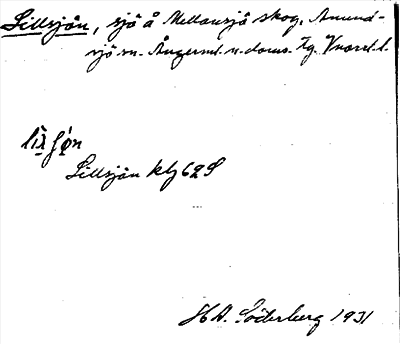 Lillsjön, sjö å Mellansjö skog, Anund-
sjö sn. Ångerml. n. doms. Tg. Vnorrl. l.
Lillsjön ktg 62 S
H. A. Söderberg 1931